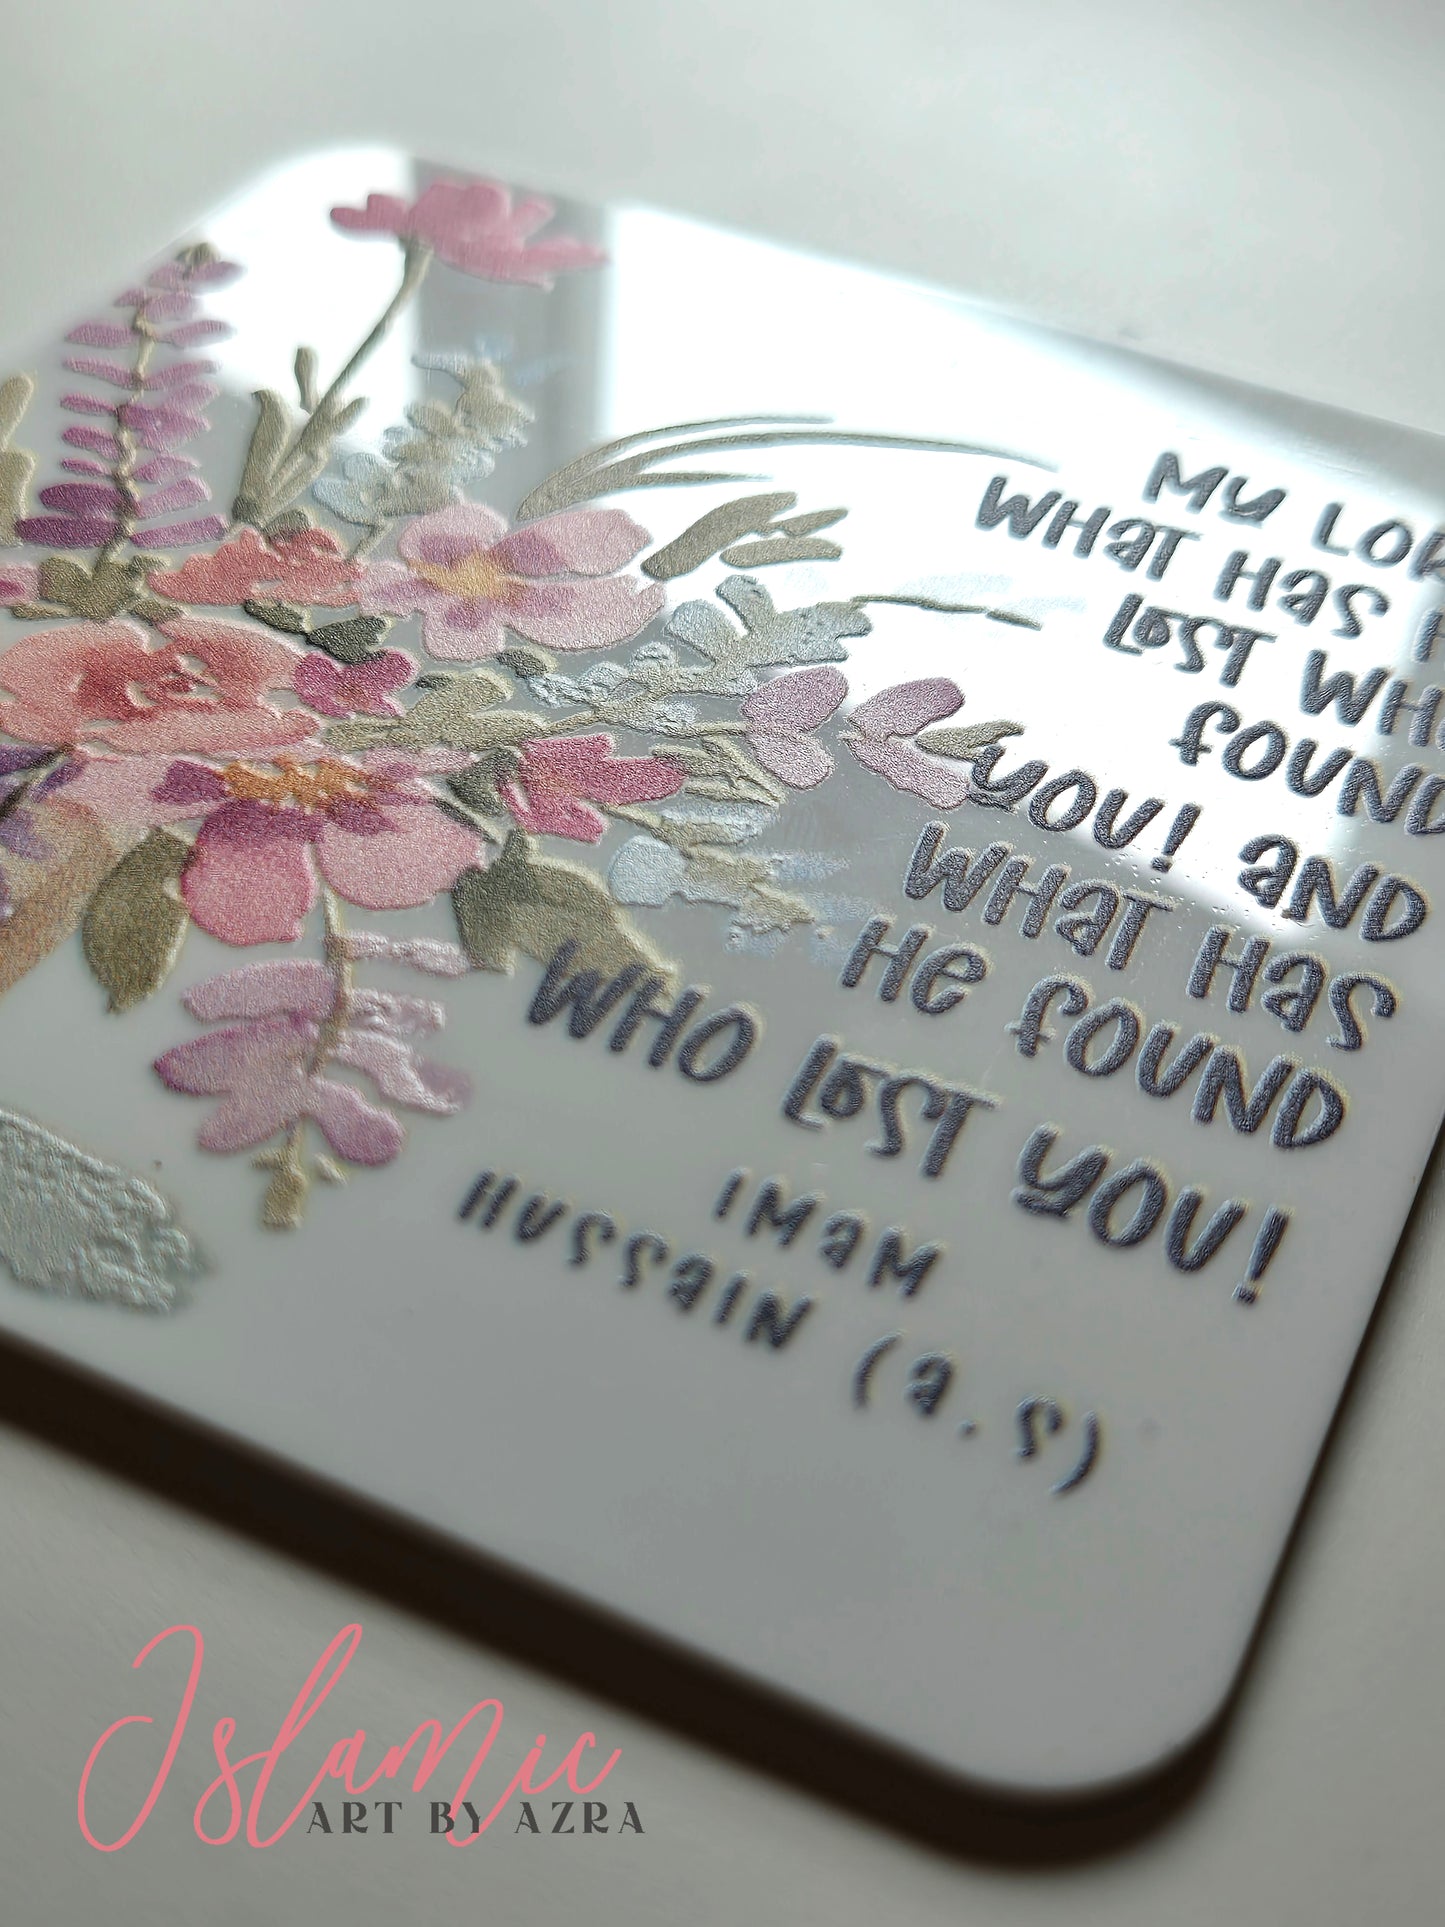 MY
WHAT HAS
LOST
FOUND
YOU! AND
WHAT HAS
HE FOUND
WHO LOST YOU!
IMAM
HUSSAIN (A.S)
Islamic
ART BY AZRA